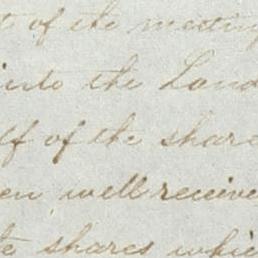 t of the meeting
into the Land
lf of the share
en well receive
te shares whic